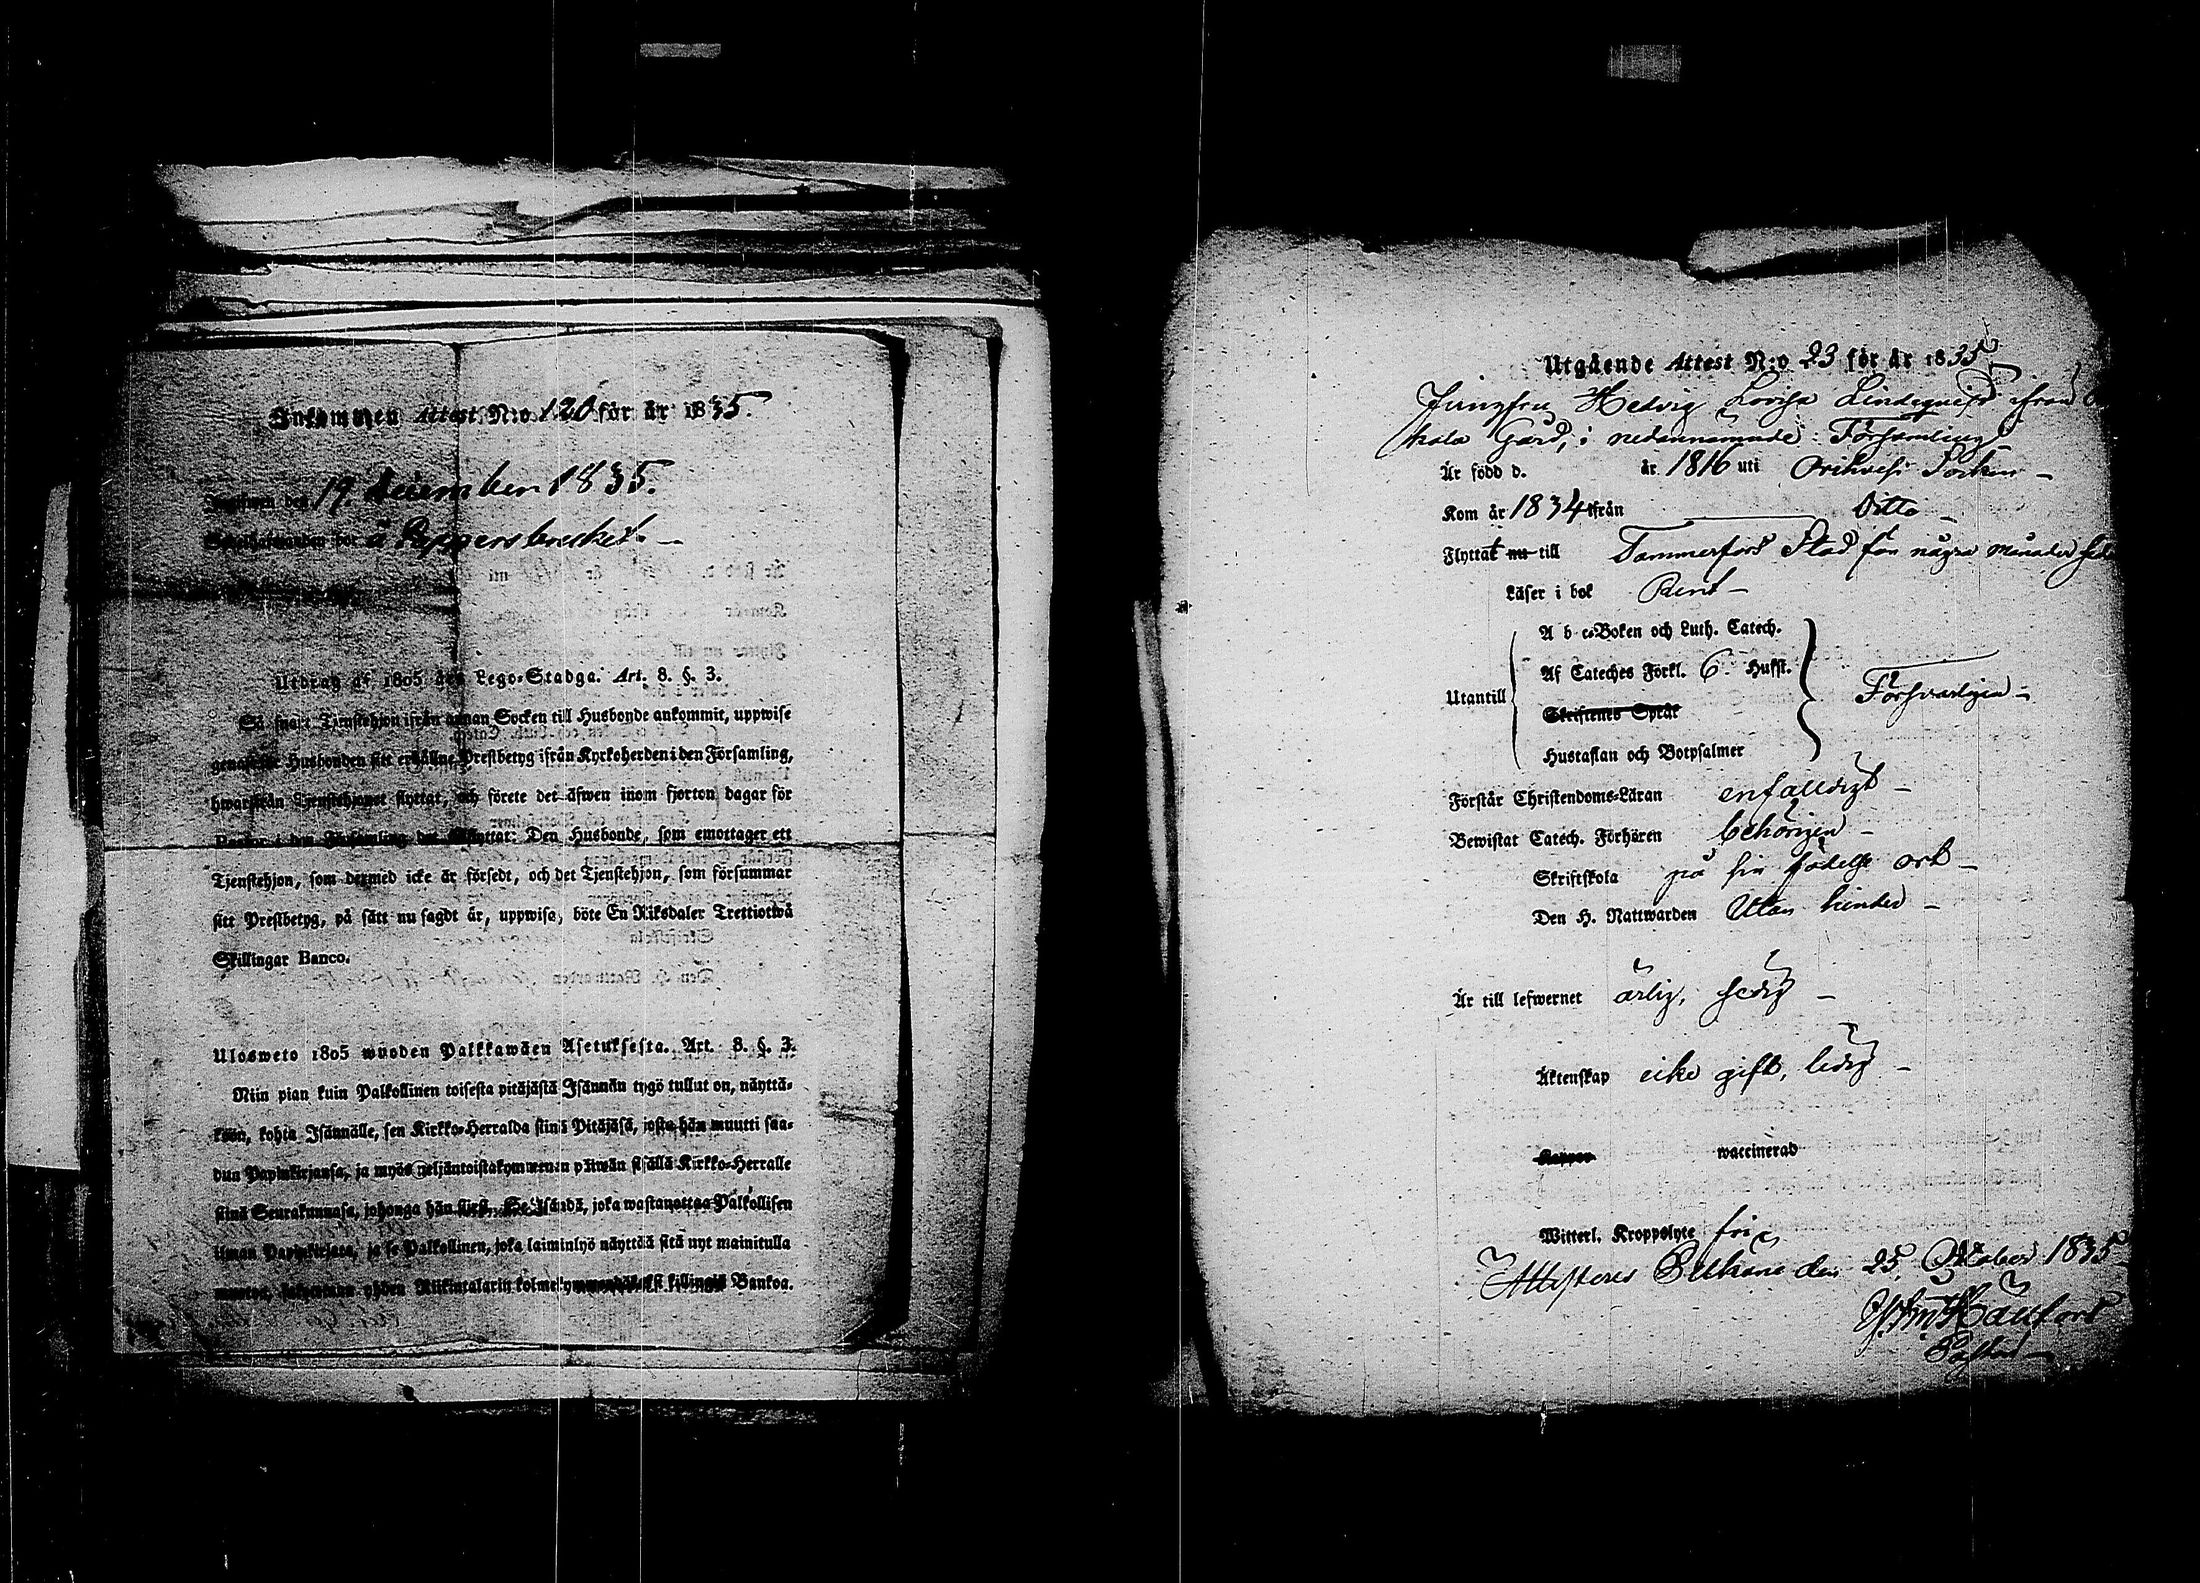 Inkommen Attest N:o 120 för år 1835.
Ingifwen den 19. december 1835.
Behofwanden bor å Pispansbacken
Utdrag af 1805 års Lego-Stadga. Art. 8. §. 3.
Så snart Tjenstehjon ifrån annan Socken till Husbonde ankommit, uppwise
genast för Husbonden sitt erhållne Prestbetyg ifrån Kyrkoherden i den Församling,
hwarifrån Tjenstehjonet flyttat, och förete det äfwen inom fjorton dagar för
Pastor i den Församling det tillflyttat: Den Husbonde, som emottager ett
Tjenstehjon, som dermed icke är försedt, och det Tjenstehjon, som försummar
sitt Prestbetyg, på sätt nu sagdt är, uppwisa, böte En Riksdaler Trettiotwå
Skillingar Banco.
Ulosweto 1805 wuoden Palkkawäen Asetuksesta. Art. 8. §. 3.
Niin pian kuin Palkollinen toisesta pitäjästä Isännän tygö tullut on, näyttä-
köön, kohta Isännälle, sen Kirkko-Herralda siinä Pitäjäsä, josta hän muutti saa-
dun Papinkirjansa, ja myös neljäntoistakymmenen päiwän sisällä Kirkko-Herralle
siinä Seurakunnasa, johonga hän siirsi. Se Isändä, joka wastanottaa Palkollisen
ilman Papinkirjata, ja se Palkollinen, joka laiminlyö näyttää sitä nyt mainitulla
muotoa, wetäkään yhden Riikintalarin kolmekymmendäkaksi killingiä Bankoa.
Utgående Attest N:o 23 för år 1835
Jungfru Hedvig Lovisa Lindeqvist ifrån
hala Gård, i nedannämnde Församling
Är född d. år 1816 uti Orihvesi Socken –
Kom år 1834 ifrån Ditto –
Flyttat nu till Tammerfors Stad för några månader
Läser i bok Rent –
A b c-Boken och Luth. Catech.
Af Cateches Förkl. 6 Hufst.
Utantill Försvarligen –
Skriftenes Språk
Hustaflan och Botpsalmer
Förstår Christendoms-Läran enfaldigt –
Bewistat Catech. Förhören behörigen –
Skriftskola på sin födelse ort –
Den H. Nattwarden Utan hinder –
Är till lefwernet ärlig, sedig –
Äktenskap icke gift, ledig –
Koppor waccinerad
Witterl. Kroppslyte fri
Attesteres Pelkäne den 25. October 1835
Hällfors
Pastor –